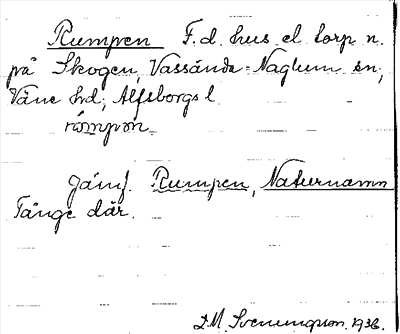 Rumpen F. d. hus el torp n.
på Skogen, Vassända-Naglum sn,
Väne hd, Älfsborgs l
rómpón
Jämf. Rumpen, Naturnamn
Tånge där.
D.M. Svenungson. 1936.